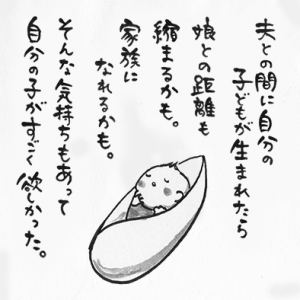 夫との間に自分の
子どもが生まれたら
娘との距離も
縮まるかも。
家族に
なれるかも。
そんな気持ちもあって
自分の子がすごく欲しかった。